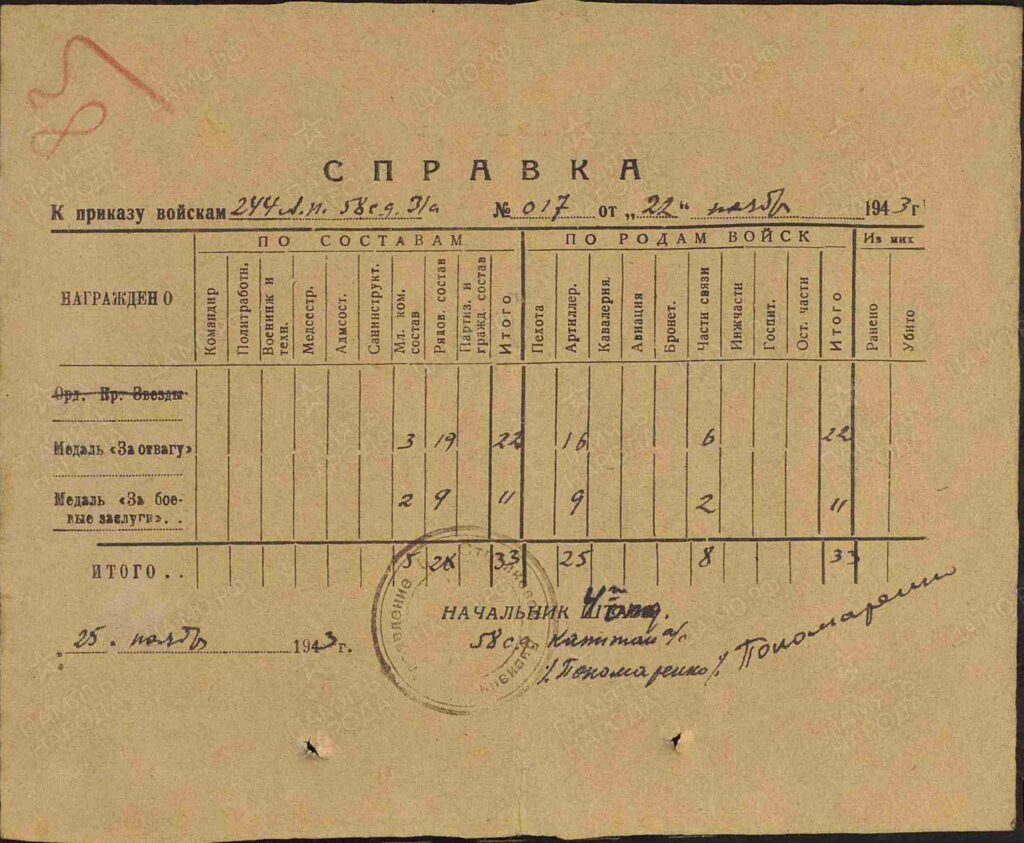 87
СПРАВКА
К приказу войскам 244 А.п. 58 сд. № 017 от „22“ ноябр 1943 г
НАГРАЖДЕНО ПО СОСТАВАМ ПО РОДАМ ВОЙСК Из них
Командир Политработн. Военинж и техн. Медсестр. Адмсост. Санинструкт. Мл. ком. состав Рядов. состав Партиз. и гражд. состав Итого Пехота Артиллер. Кавалерия. Авиация Бронет. Части связи Инжчасти Госпит. Ост. части Итого Ранено Убито
Орд. Кр. Звезды
Медаль «За отвагу» 3 19 22 16 6 22
Медаль «За бое-
вые заслуги». . 2 9 11 9 2 11
ИТОГО . . 5 28 33 25 8 33
НАЧАЛЬНИК 4 отд.
„25. ноябр 1943 г. 58 сд капитан а/с
/Пономаренко/ Пономаренко
ЦАМО.РФ
ПАМЯТЬ НАРОДА